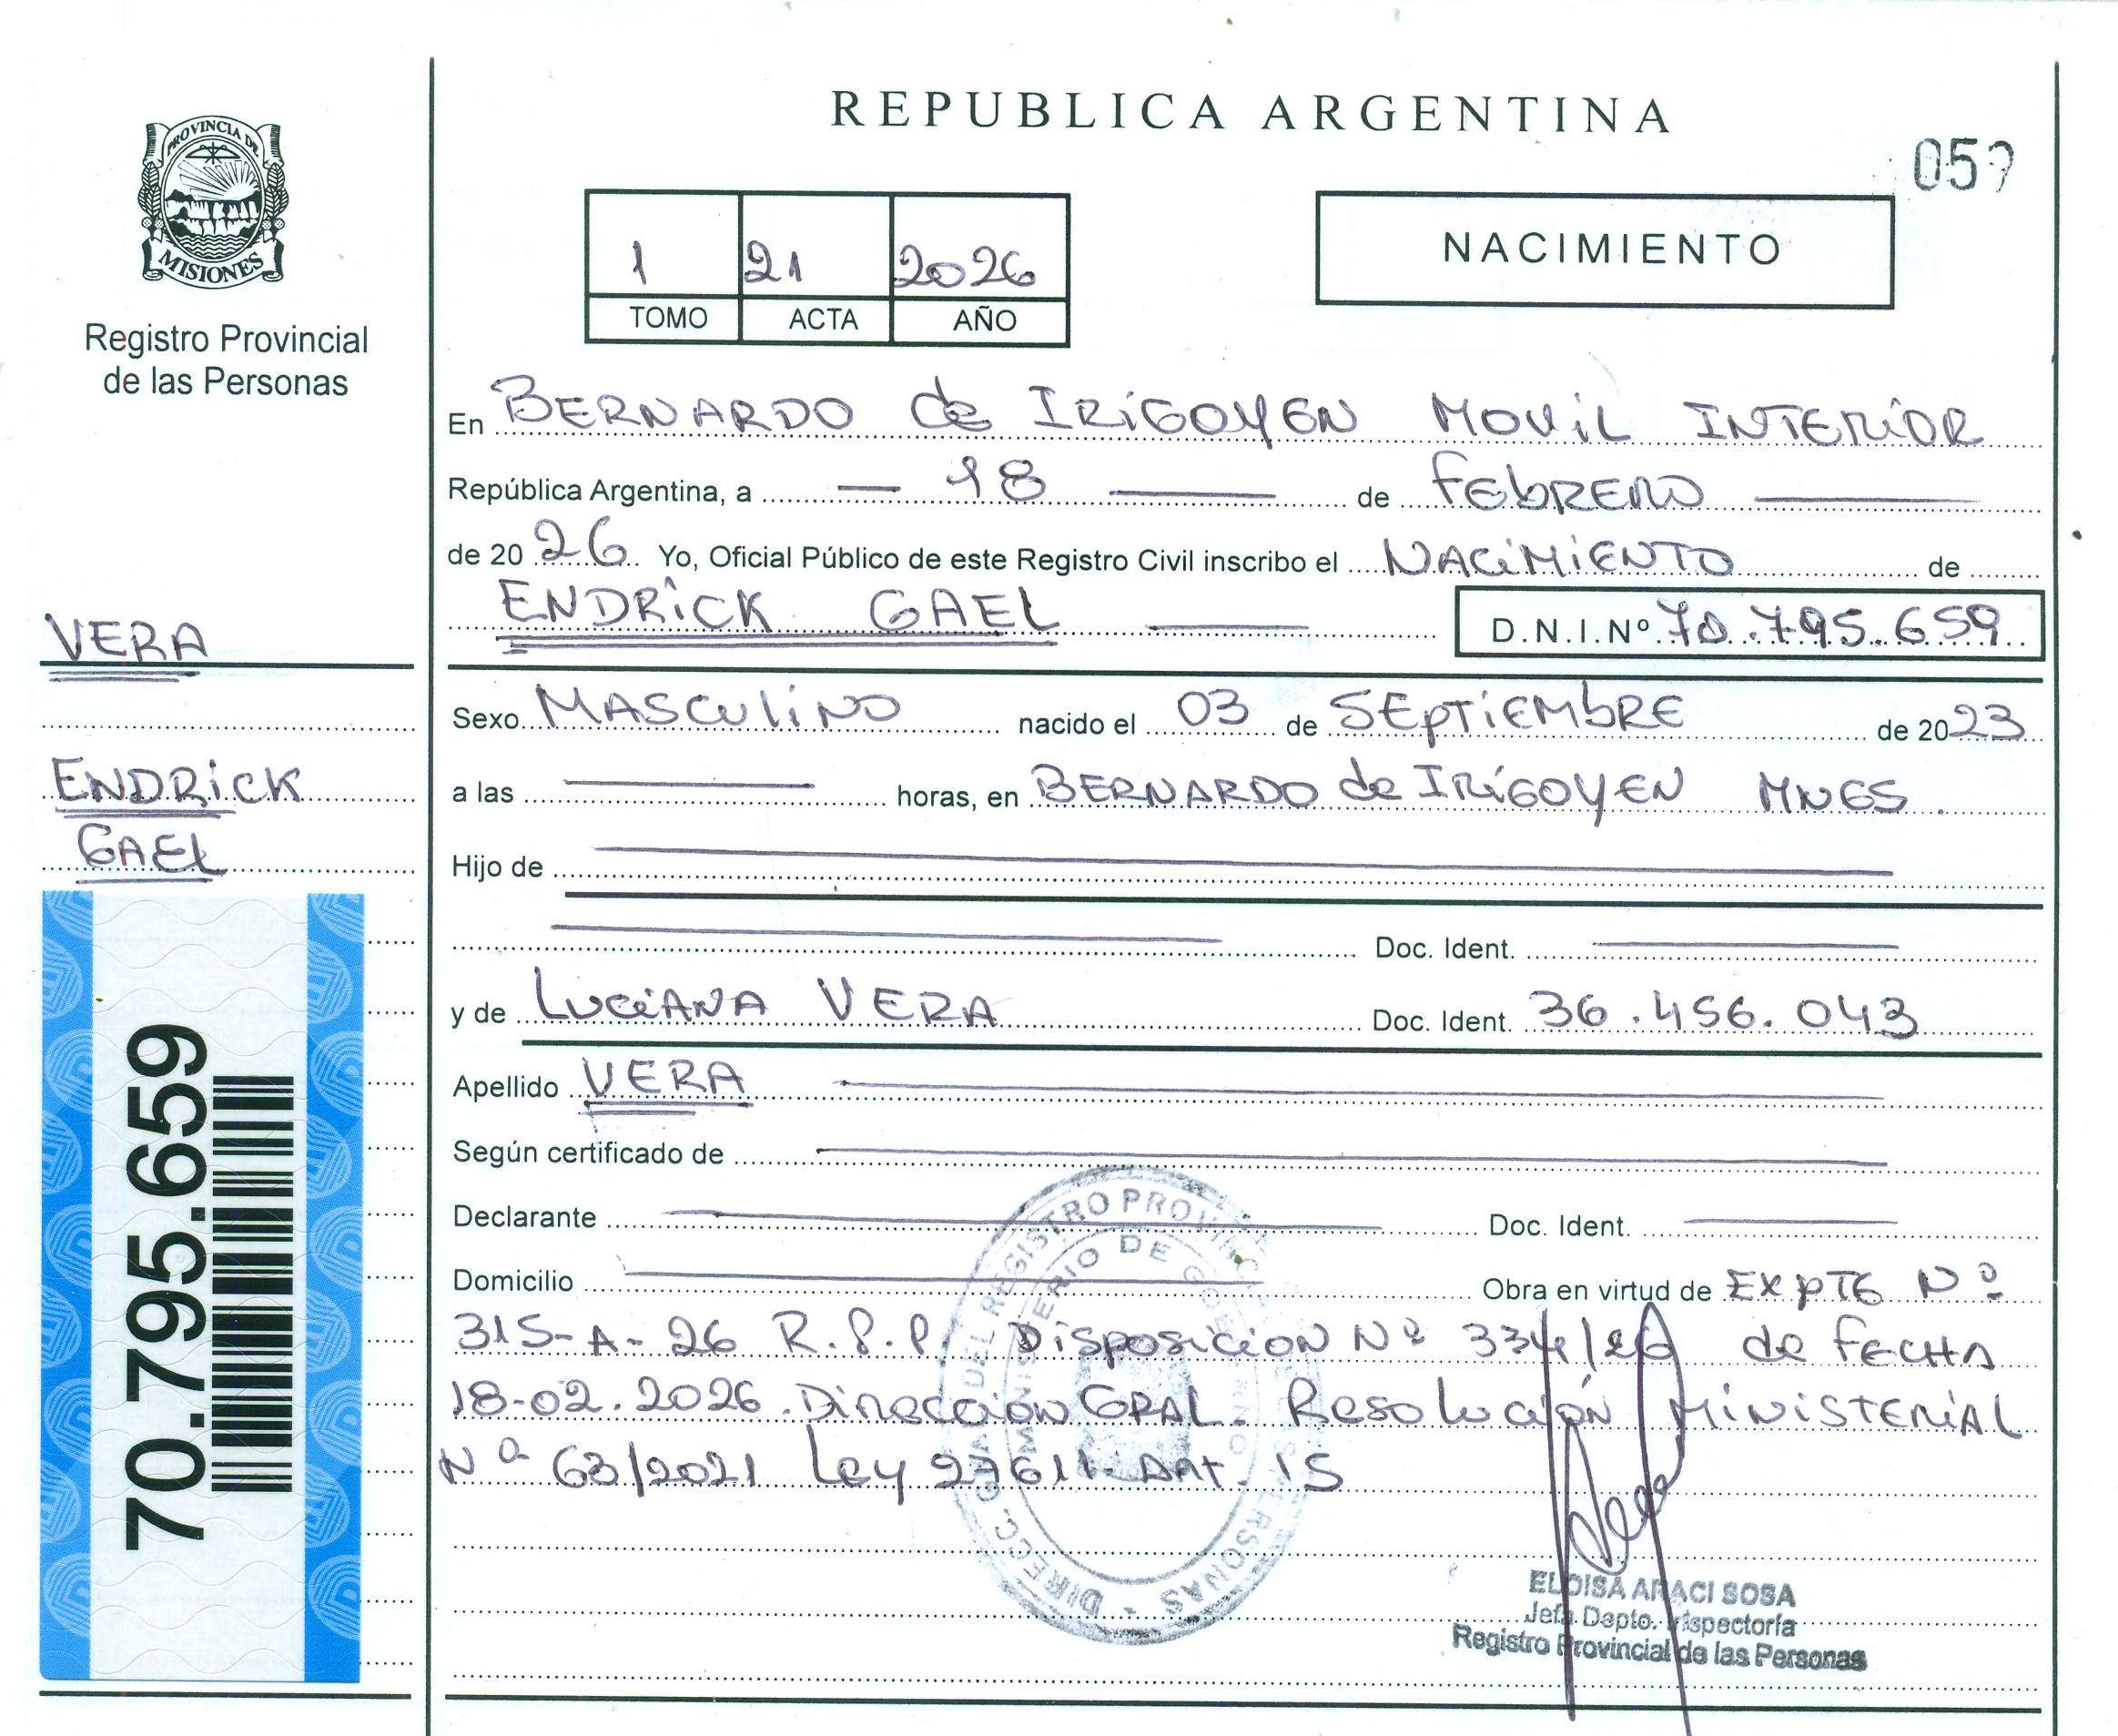 PROVINCIA DE
MISIONES
Registro Provincial
de las Personas
VERA
ENDRICK
GAEL
70.795.659
REPUBLICA ARGENTINA
059
1 21 2026
TOMO ACTA AÑO
NACIMIENTO
En BERNARDO de IRIGOYEN MOVIL INTERIOR
República Argentina, a — 18 — de FEBRERO —
de 2026 Yo, Oficial Público de este Registro Civil inscribo el NACIMIENTO de
ENDRICK GAEL — D.N.I.Nº 70.795.659
Sexo MASCULINO nacido el 03 de SEPTIEMBRE de 2023
a las — horas, en BERNARDO de IRIGOYEN MNES.
Hijo de —
— Doc. Ident. —
y de LUCIANA VERA Doc. Ident. 36.456.043
Apellido VERA —
Según certificado de —
Declarante — Doc. Ident. —
Domicilio — Obra en virtud de EXPTE Nº
315-A-26 R.P.P. Disposicion Nº 334/26 de FECHA
18-02.2026. Dirección GRAL. Resolución MINISTERIAL
Nº 63/2021 Ley 27611. Art. 15
DIRECC. GRAL DEL REGISTRO PROVINCIAL DE LAS PERSONAS
MINISTERIO DE GOBIERNO
ELOISA ARACI SOSA
Jefa Dpto. Inspectoría
Registro Provincial de las Personas